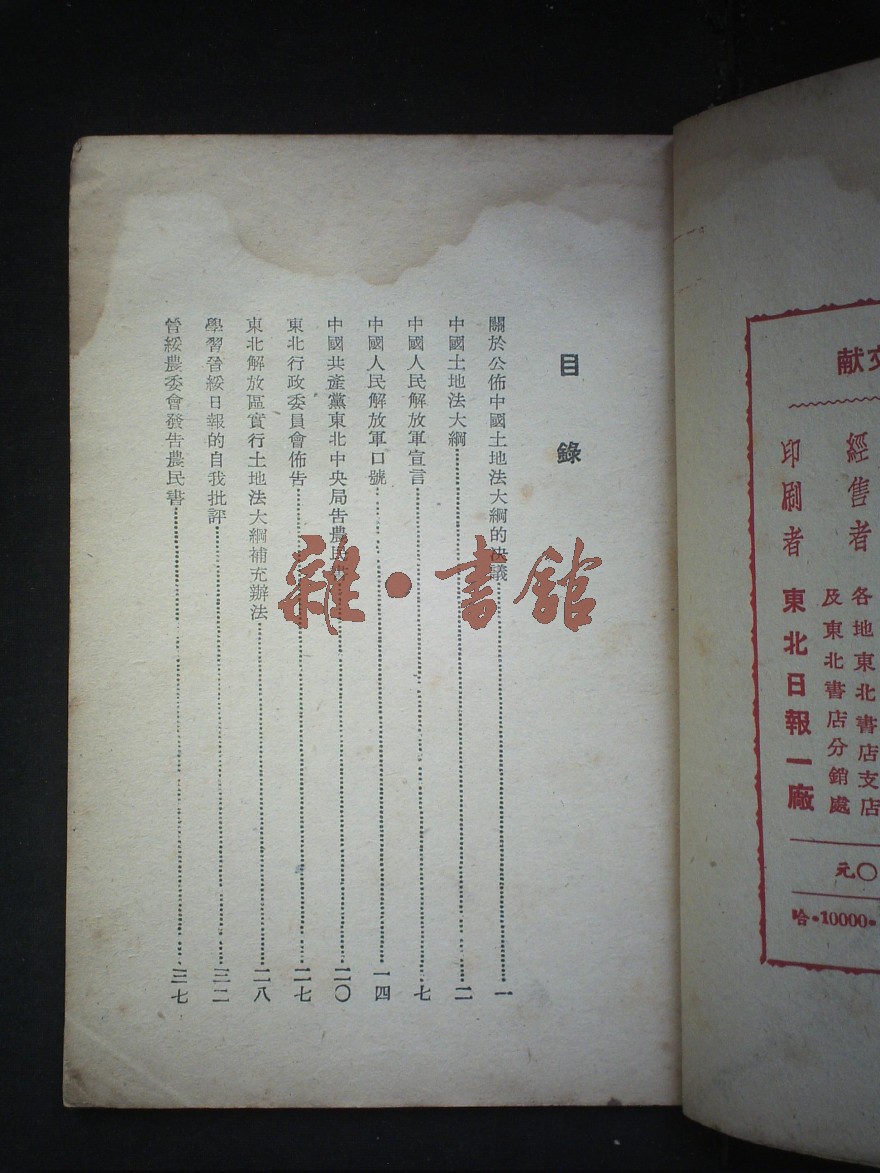 目錄
關於公佈中國土地法大綱的決議……一
中國土地法大綱……二
中國人民解放軍宣言……七
中國人民解放軍口號……一四
中國共產黨東北中央局告農民書……二〇
東北行政委員會佈告……二七
東北解放區實行土地法大綱補充辦法……二八
學習晉綏日報的自我批評……三二
晉綏農委會發告農民書……三七
雜·書館
献
經售者
各地東北書店支店
及東北書店分銷處
印刷者
東北日報一廠
元〇
哈·10000·